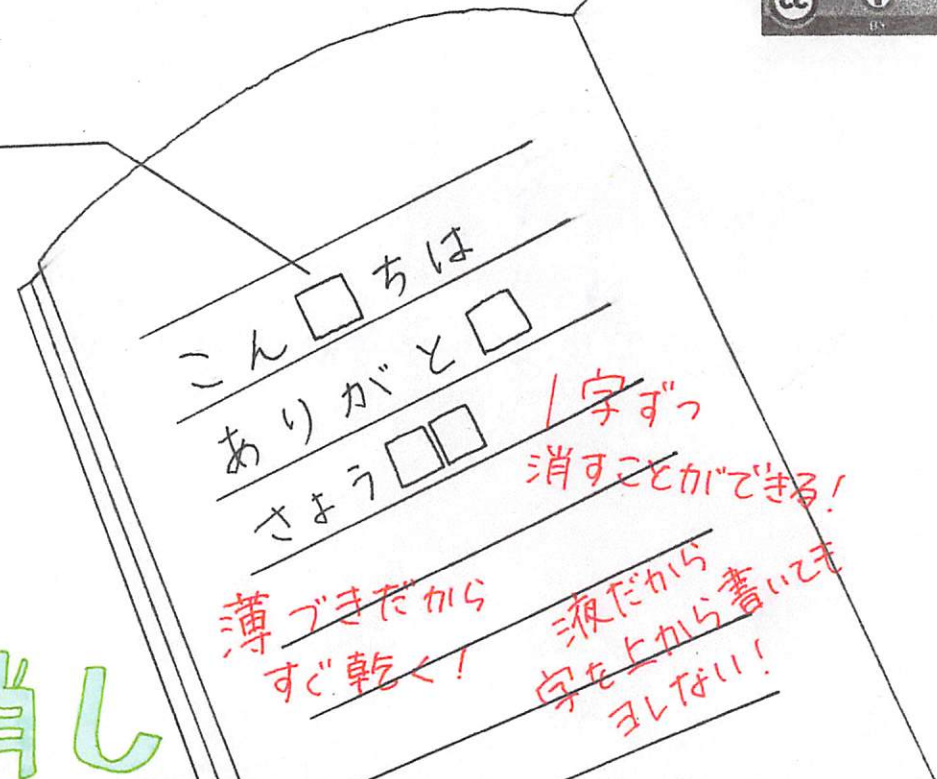 こん□ちは
ありがと□
さょう□□
1字ずつ
消すことができる!
薄づきだから
すぐ乾く!
液だから
字を上から書いても
ヨレない!
消し
cc
BY